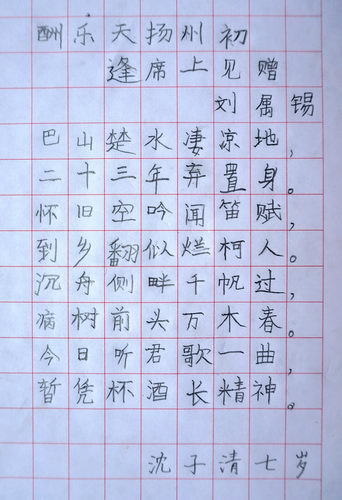 酬乐天扬州初
逢席上见赠
刘属锡
巴山楚水凄凉地，
二十三年弃置身。
怀旧空吟闻笛赋，
到乡翻似烂柯人。
沉舟侧畔千帆过，
病树前头万木春。
今日听君歌一曲，
暂凭杯酒长精神。
沈子清七岁